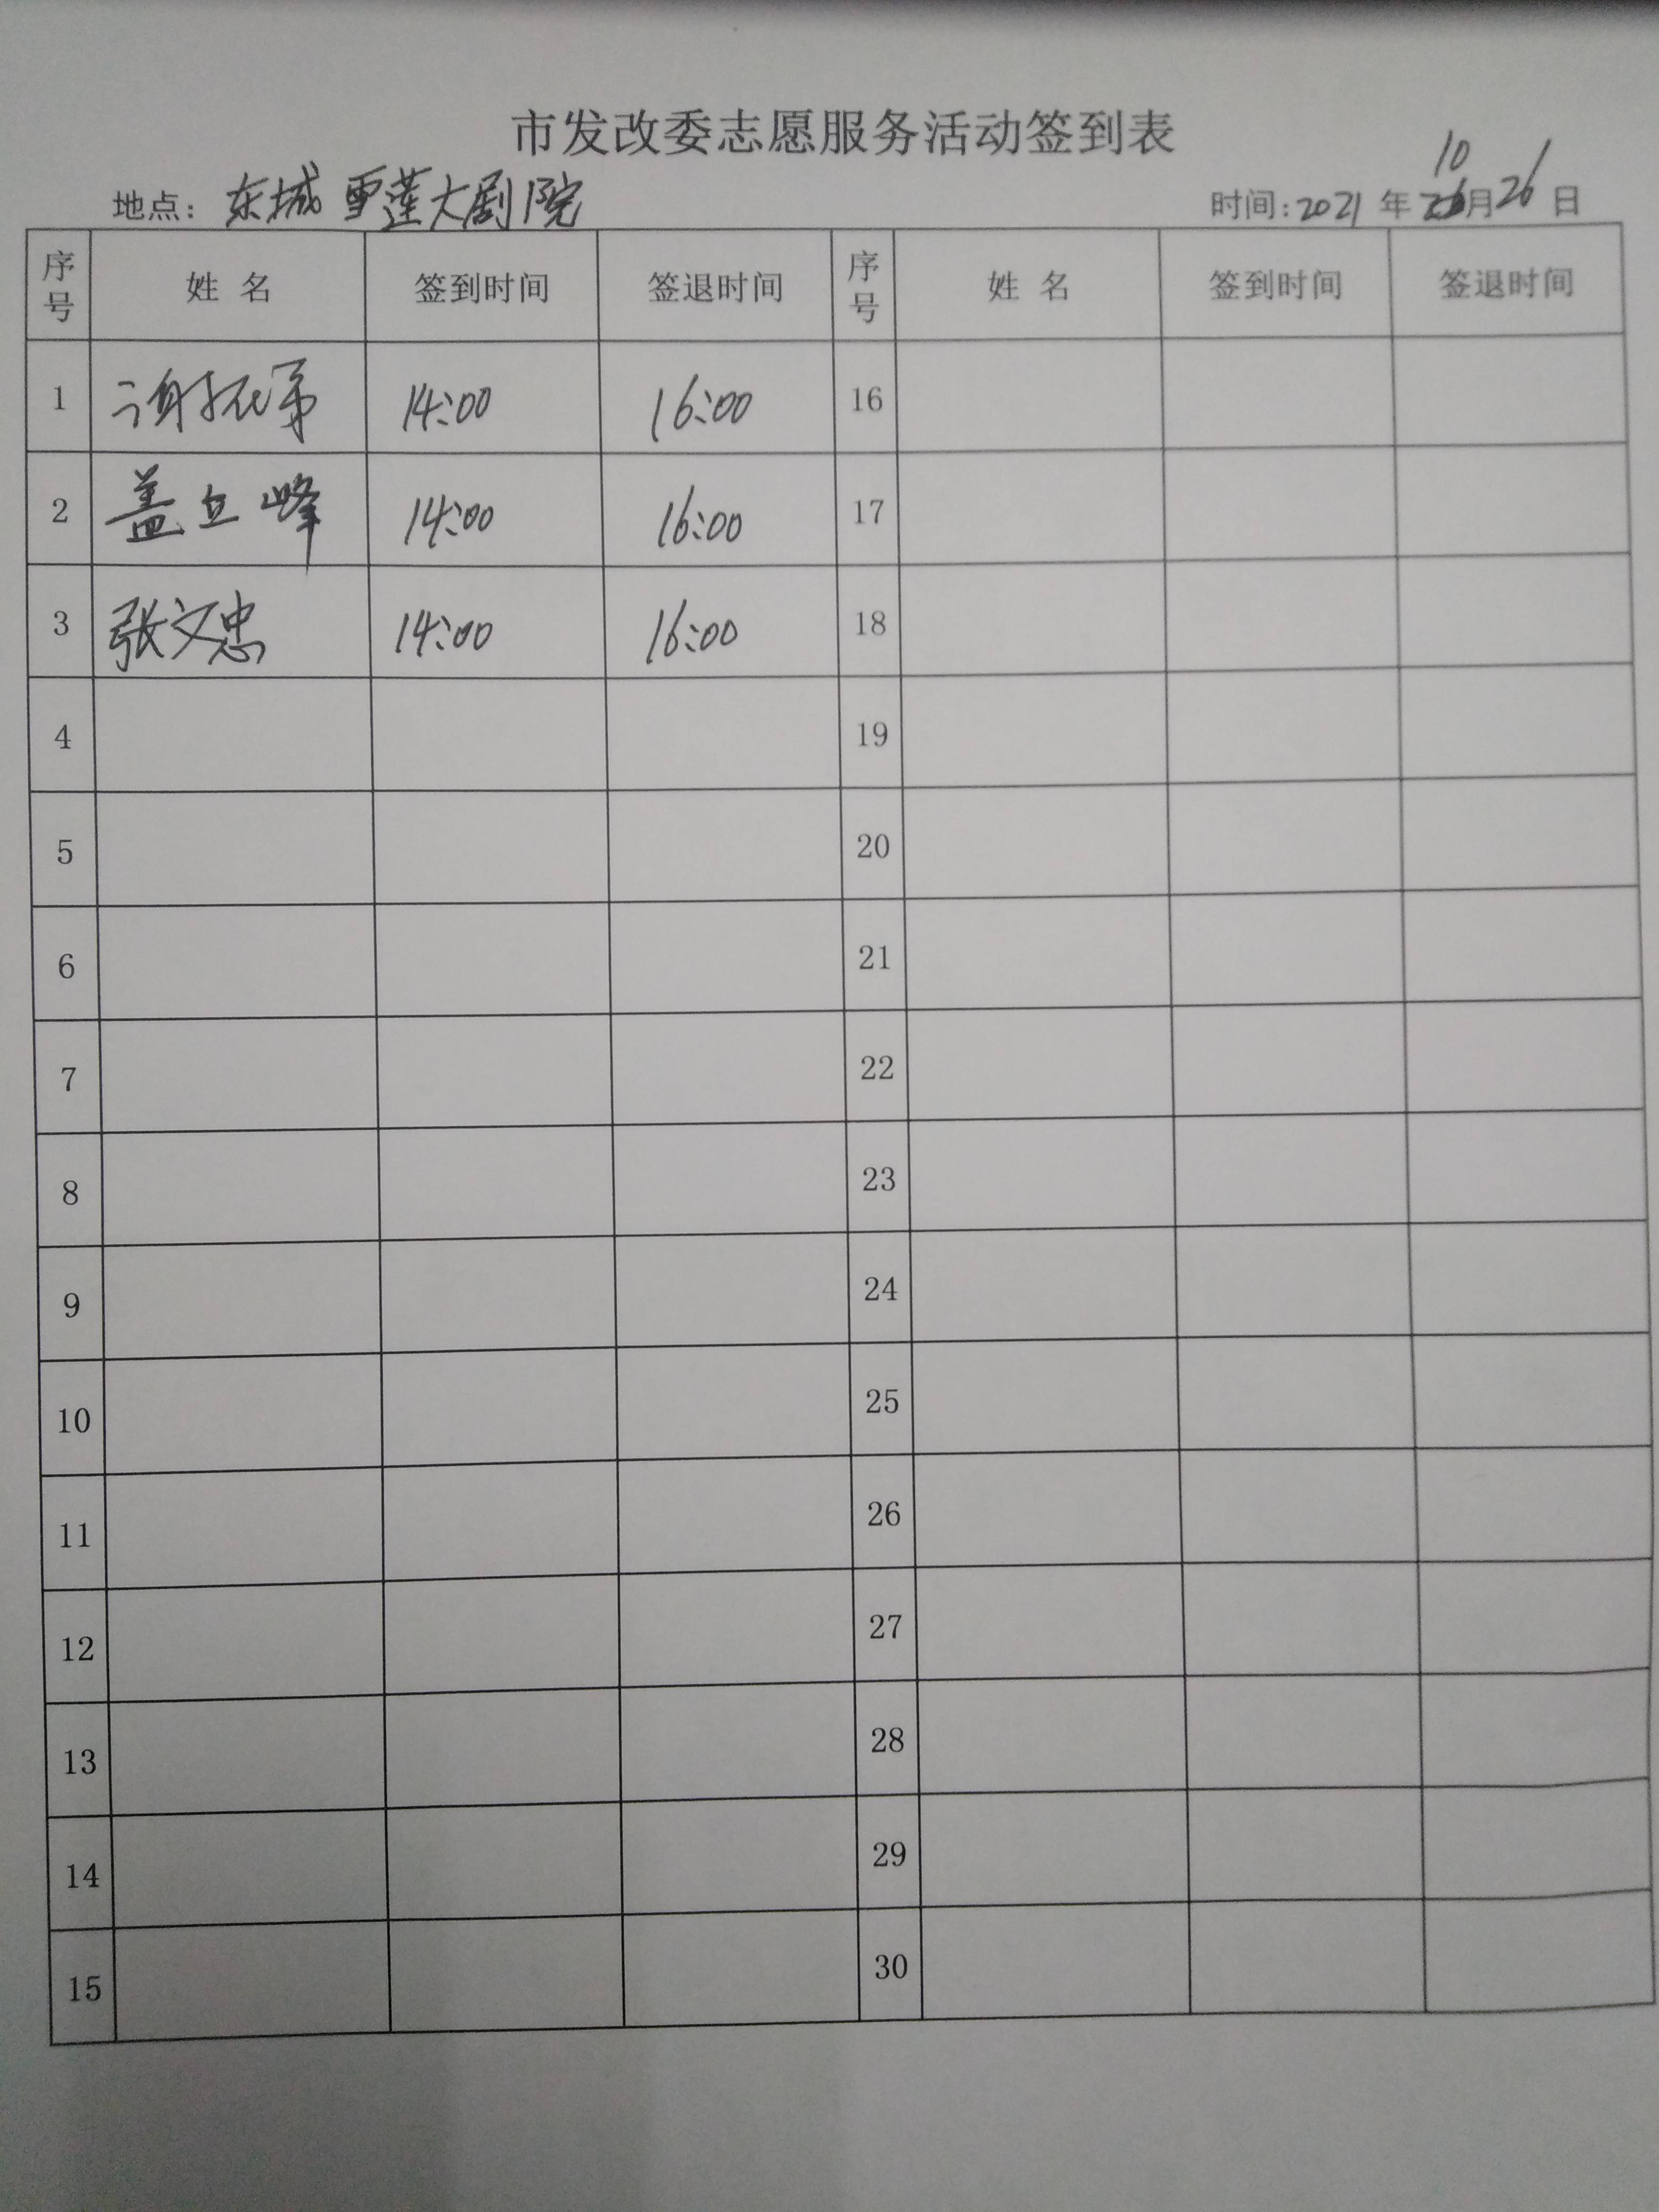 市发改委志愿服务活动签到表
地点: 东城雪莲大剧院 时间: 2021 年 10 月 26 日
序号 姓 名 签到时间 签退时间 序号 姓 名 签到时间 签退时间
1 14:00 16:00 16
2 盖立峰 14:00 16:00 17
3 张文忠 14:00 16:00 18
4 19
5 20
6 21
7 22
8 23
9 24
10 25
11 26
12 27
13 28
14 29
15 30